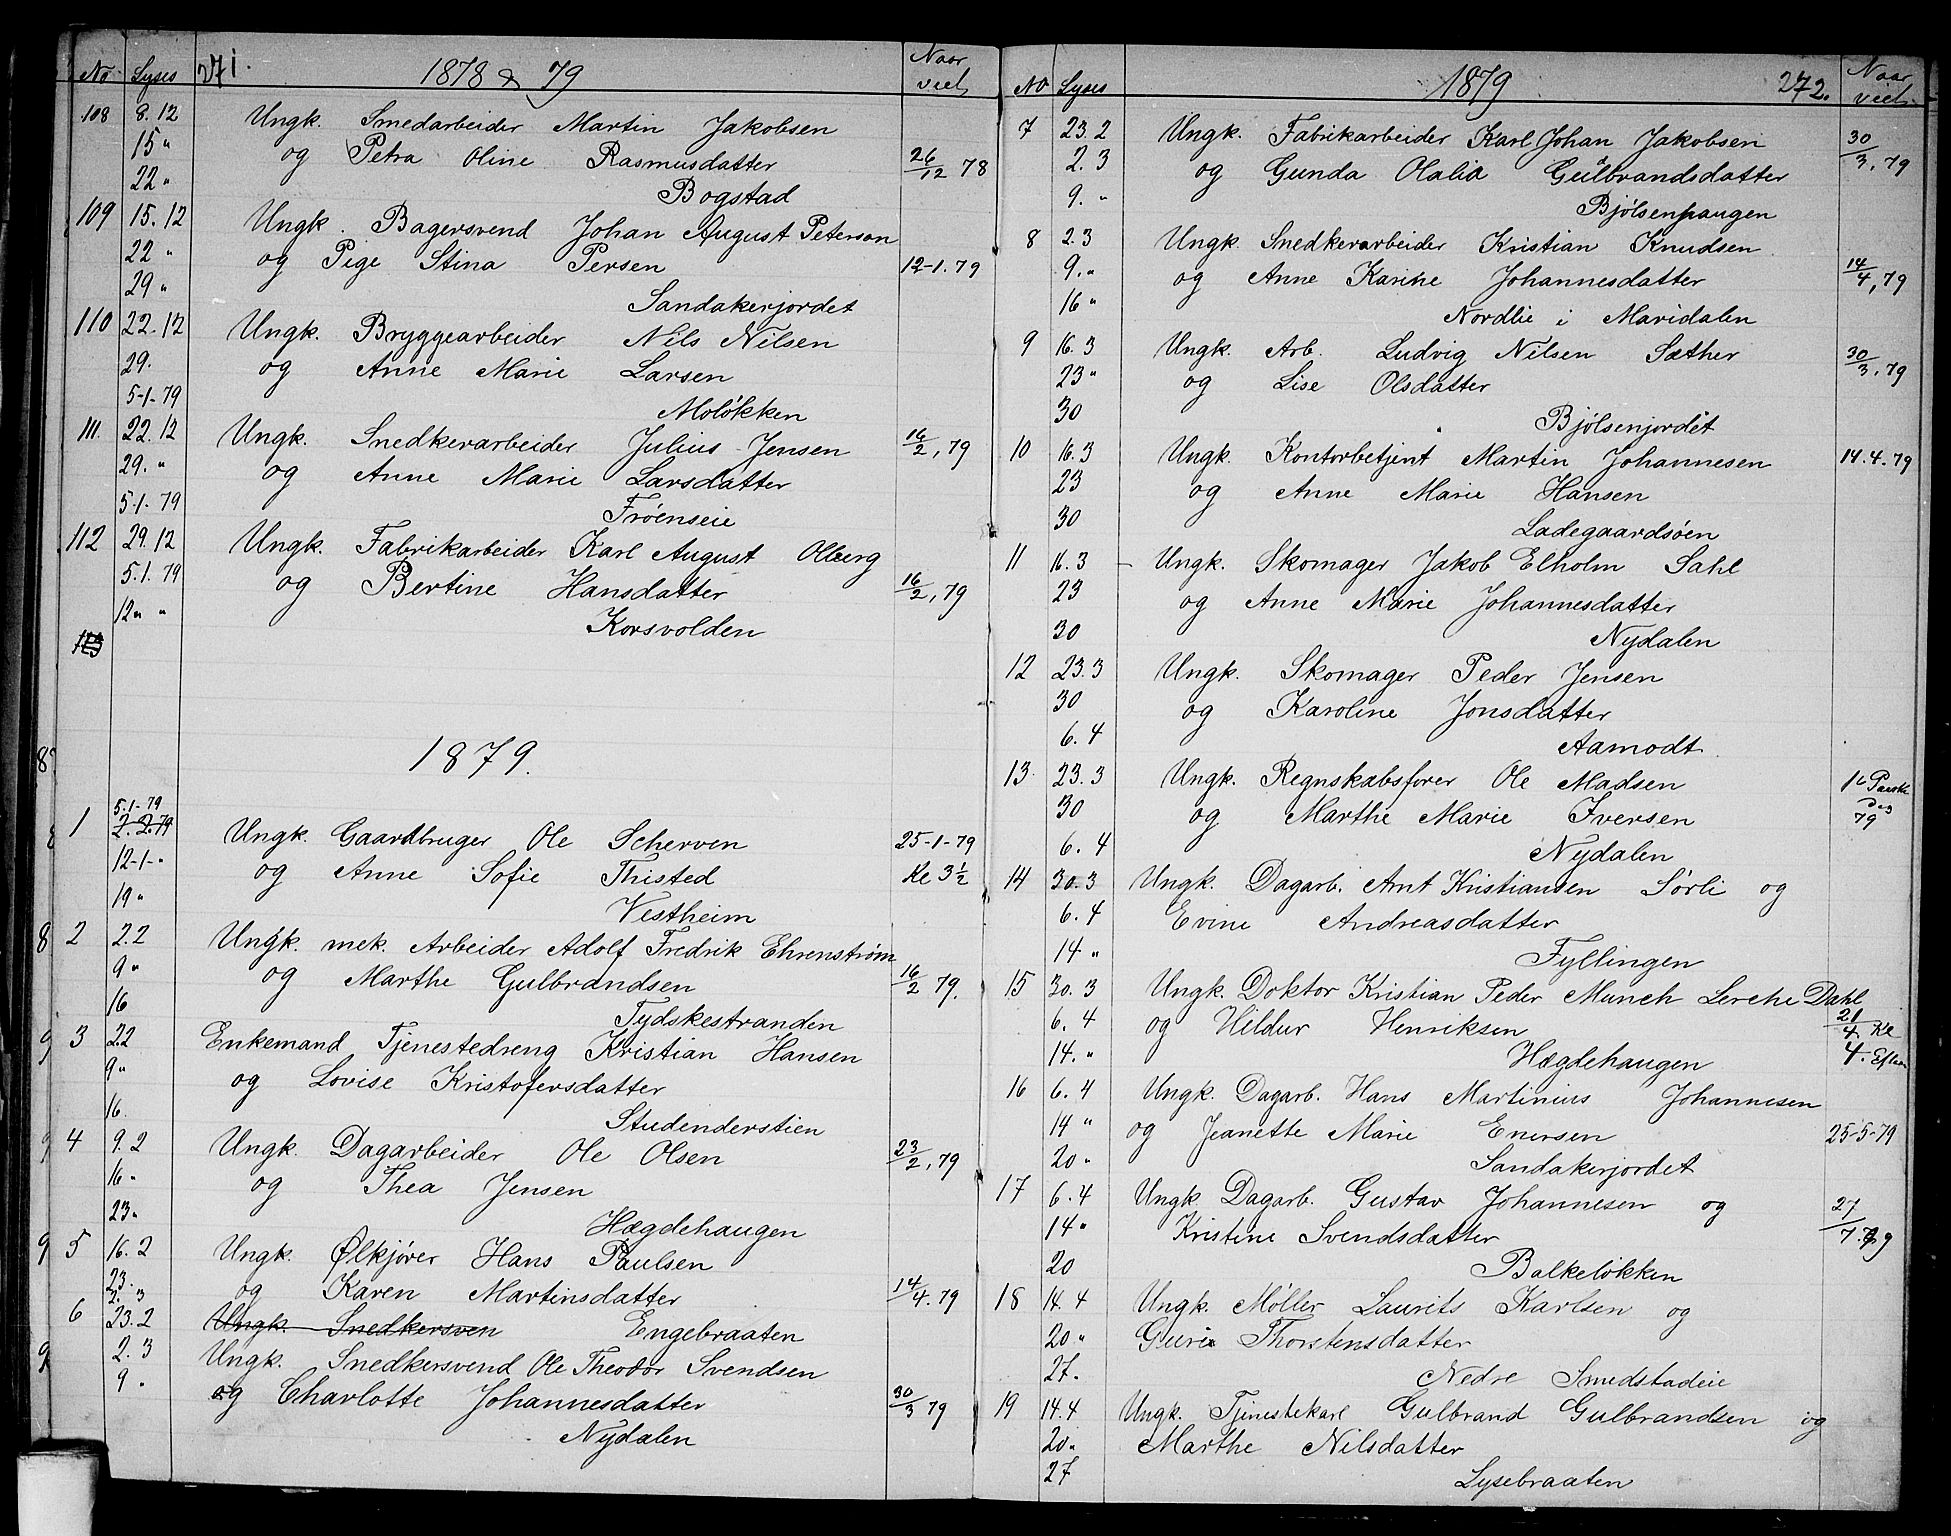 No Lyses 271. 1878 & 79 Naar viet
108 8.12 Ungk. Smedarbeider Martin Jakobsen
15 " og Petra Oline Rasmusdatter 26/12 78
22 " Bogstad
109 15.12 Ungk. Bagersvend Johan August Peterson
22 " og Pige Stina Persen 12-1.79
29 " Sandakerjordet
110 22.12 Ungk. Bryggearbeider Nils Nilsen
29. og Anne Marie Larsen
5-1-79 Moløkken
111. 22.12 Ungk. Snedkerarbeider Julius Jensen 16/2, 79
29. " og Anne Marie Larsdatter
5.1.79 Frøenseie
112 29.12 Ungk. Fabrikarbeider Karl August Olberg
5.1.79 og Bertine Hansdatter 16/2, 79
12 " " Korsvolden
113
1879.
5.1-79
1 2.2.79 Ungk. Gaardbruger Ole Scherven 25-1-79
12-1-" og Anne Sofie Thisted Kl 3 1/2
19 " Vestheim
2 2.2 Ungk. mek. Arbeider Adolf Fredrik Ehrenstrøm
9 " og Marthe Gulbrandsen 16/2 79.
16 Tydskestranden
3 2.2 Enkemand Tjenestedreng Kristian Hansen
9 " og Lovise Kristofersdatter
16. Studenderstien
4 9.2 Ungk. Dagarbeider Ole Olsen 23/2, 79
16 " og Thea Jensen
23 " Hægdehaugen
5 16.2 Ungk. Ølkjører Hans Paulsen
23. og Karen Martinsdatter 14/4.79
2. 3
6 23.2 Ungk. Snedkersven Engebraaten
2. 3 Ungk. Snedkersvend Ole Theodor Svendsen
9 " og Charlotte Johannesdatter 30/3 79
Nydalen
No Lyses 1879 272. Naar viet.
7 23.2 Ungk. Fabrikarbeider Karl Johan Jakobsen 30/3, 79
2.3 og Gunda Olalia Gulbrandsdatter
9. " Bjølsenhaugen
8 2.3 Ungk. Snedkerarbeider Kristian Knudsen
9. " og Anne Karine Johannesdatter 14/4, 79
16 " Nordlie i Maridalen
9 16.3 Ungk. Arb. Ludvig Nilsen Sæther 30/3, 79
23 " og Lise Olsdatter
30 Bjølsenjordet
10 16.3 Ungk. Kontorbetjent Martin Johannesen 14.4.79
23 og Anne Marie Hansen
30 Ladegaardsøen
11 16.3 Ungk. Skomager Jakob Elholm Sahl
23 og Anne Marie Johannesdatter
30 Nydalen
12 23.3 Ungk. Skomager Peder Jensen
30 og Karoline Jonsdatter
6.4 Aamodt
13 23.3 Ungk. Regnskabsfører Ole Madsen
30 og Marthe Marie Iversen 79
6.4 Nydalen
14 30.3 Ungk. Dagarb. Arnt Kristiansen Sørli og
6.4 Evine Andreasdatter
14 " Fyllingen
15 30.3 Ungk. Doktor Kristian Peder Munch Lerche Dahl
6.4 og Hildur Henriksen 21/4 Kl
14. " Hægdehaugen 4.
16 6.4 Ungk. Dagarb. Hans Martinius Johannesen
14 " og Jeanette Marie Enersen 25-5-79
20 " Sandakerjordet
17 6.4 Ungk Dagarb. Gustav Johannesen og 27/7.79
14 " Kristine Svendsdatter
20 Balkeløkken
18 14.4 Ungk. Møller Laurits Karlsen og
20 " Guri Thorstensdatter
27. Nedre Smedstadeie
19 14.4 Ungk. Tjenestekarl Gulbrand Gulbrandsen og
20 " Marthe Nilsdatter
27 Lysebraaten